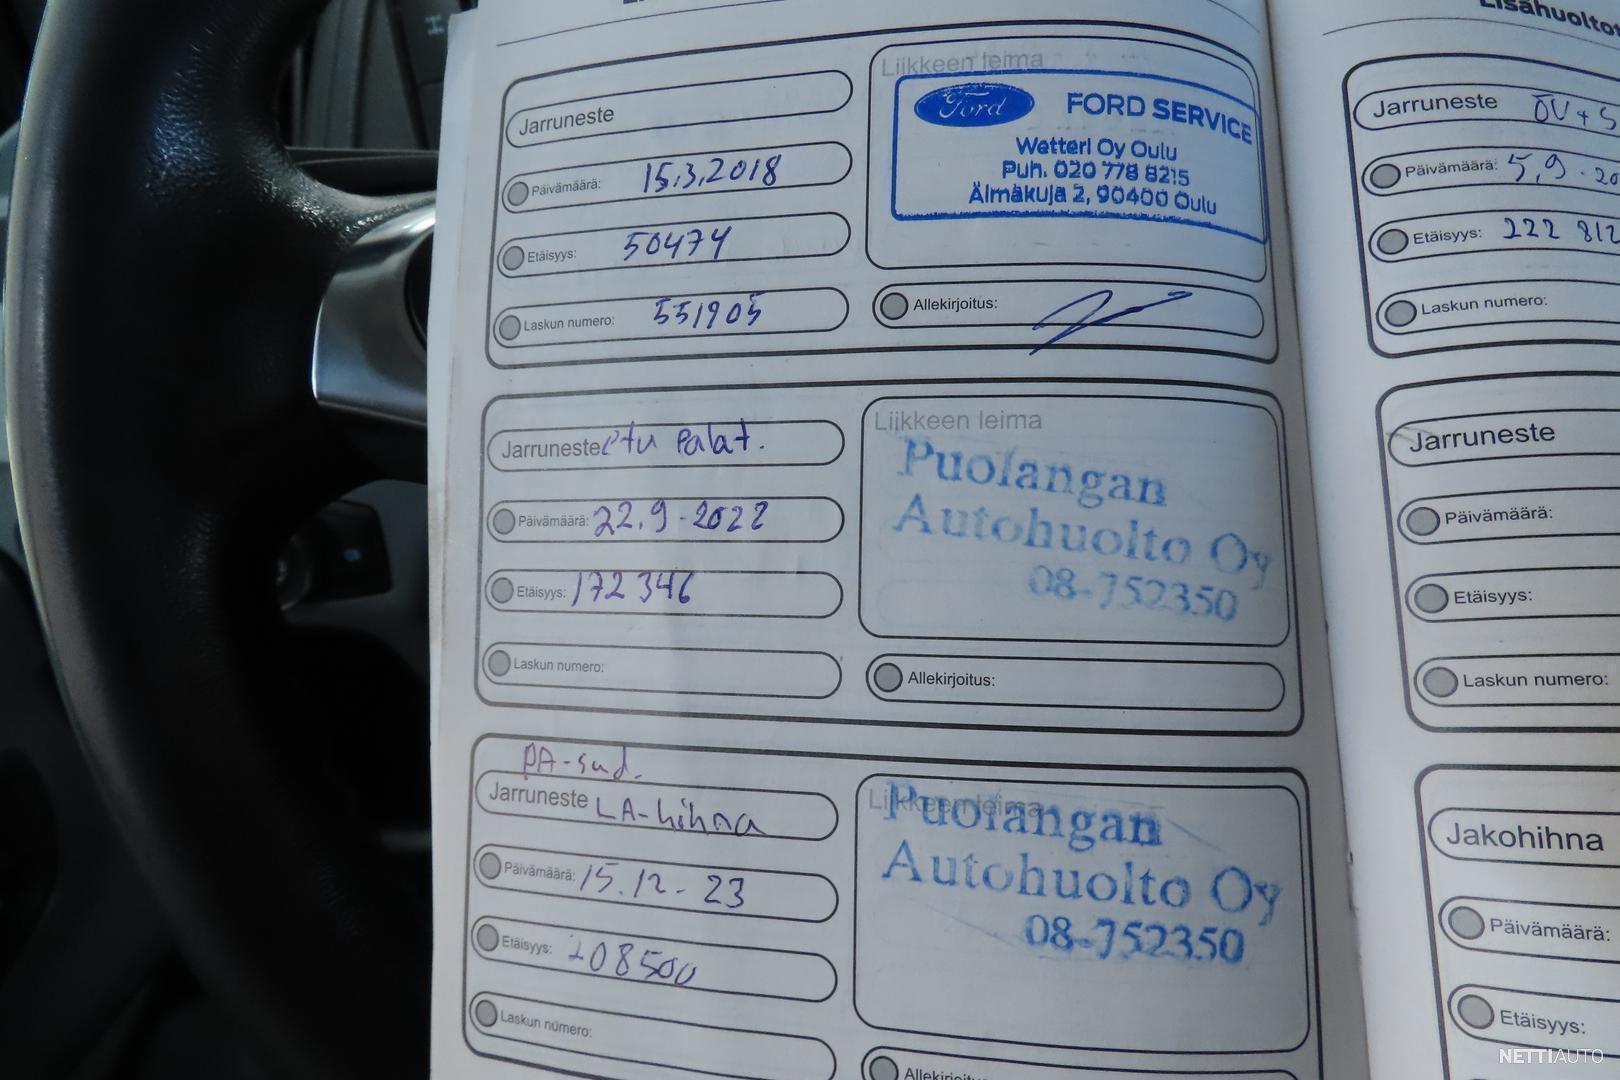 Lisähuoltot
Jarruneste
Päivämäärä: 15.3.2018
Etäisyys: 50474
Laskun numero: 551905
Liikkeen leima
Ford FORD SERVICE
Wetteri Oy Oulu
Puh. 020 778 8215
Älmäkuja 2, 90400 Oulu
Allekirjoitus:
Jarruneste etu palat.
Päivämäärä: 22.9-2022
Etäisyys: 172346
Laskun numero:
Liikkeen leima
Puolangan
Autohuolto Oy
08-752350
Allekirjoitus:
PA-sud.
Jarruneste LA-hihna
Päivämäärä: 15.12-23
Etäisyys: 208500
Laskun numero:
Liikkeen leima
Puolangan
Autohuolto Oy
08-752350
Allekirjoitus:
Jarruneste ÖV+S
Päivämäärä: 5.9-20
Etäisyys: 222 812
Laskun numero:
Jarruneste
Päivämäärä:
Etäisyys:
Laskun numero:
Jakohihna
Päivämäärä:
Etäisyys:
NETTIAUTO